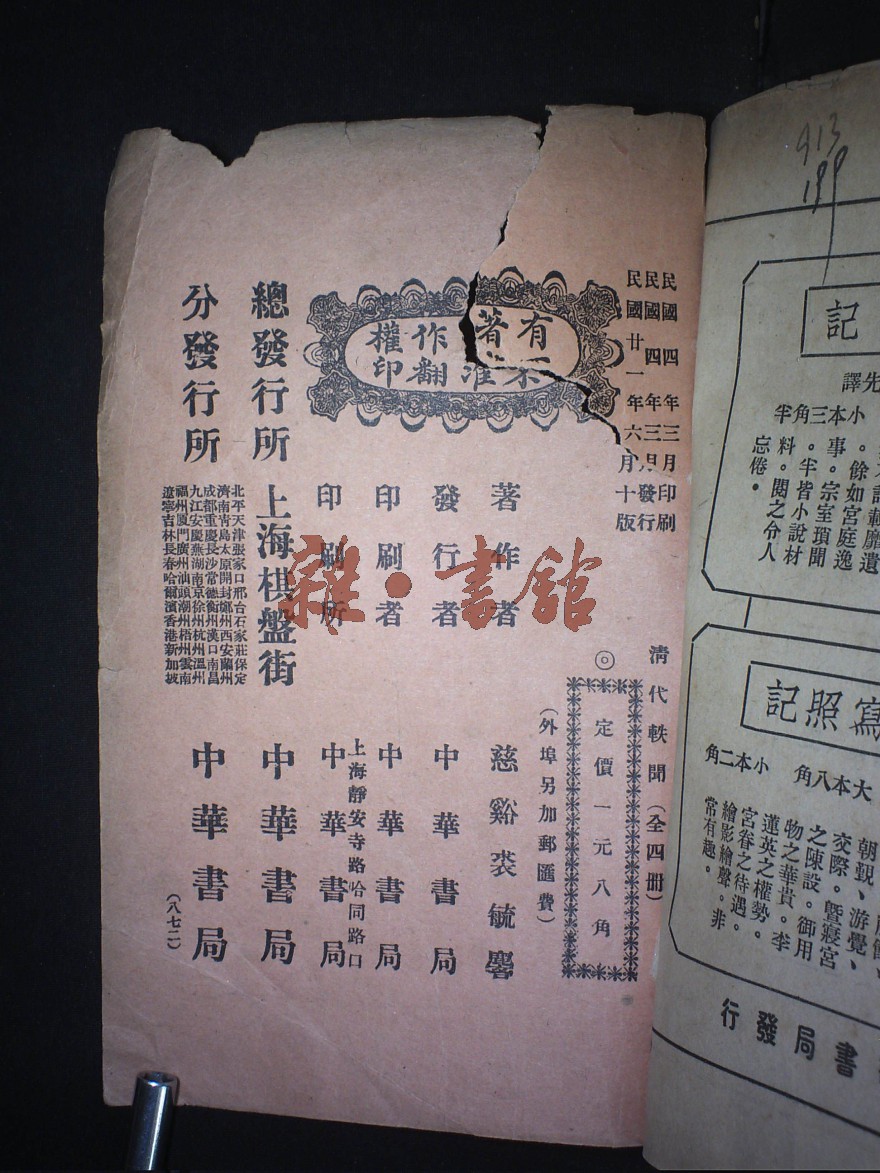 民國四年三月印刷
民國四年三月發行
民國廿一年六月十版
有著作權
不准翻印
清代軼聞（全四冊）
◎定價一元八角
（外埠另加郵匯費）
著作者 慈谿裘毓麐
發行者 中華書局
印刷者 中華書局
上海靜安寺路哈同路口
印刷所 中華書局
總發行所 上海棋盤街 中華書局
分發行所
北平天津張家口邢台石家莊保定
濟南青島太原開封鄭州西安蘭州
成都重慶長沙常德衡州漢口南昌
九江安慶蕪湖南京徐州杭州溫州
福州厦門廣州汕頭潮州梧州雲南
遼寧吉林長春哈爾濱香港新加坡
中華書局
（八七二）
雜·書館
913
199
記
先譯
小本三角半
遺
。餘如宮庭逸
事。宗室瑣聞
。半皆小說材
料。閱之令人
忘倦。
寫照記
大本八角 小本二角
朝覲、游覽、
交際。曁寢宮
之陳設。御用
物之華貴。李
蓮英之權勢。
宮眷之待遇。
繪影繪聲。非
常有趣。
書局發行